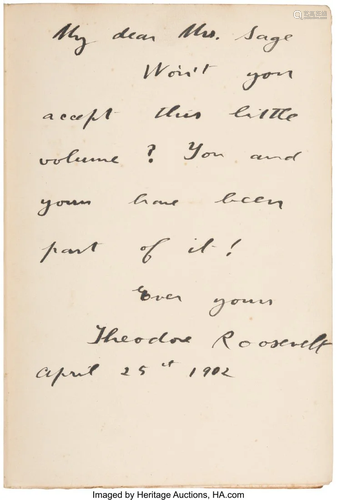 My dear Mrs. Sage
Won't you
accept this little
volume? You and
yours have been
part of it!
Ever yours
Theodore Roosevelt
April 25th 1902
Imaged by Heritage Auctions, HA.com